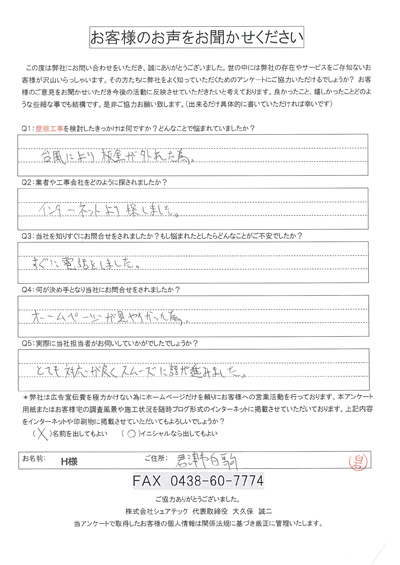 お客様のお声をお聞かせください
この度は弊社にお問い合わせをいただき、誠にありがとうございました。世の中には弊社の存在やサービスをご存知ないお
客様が沢山いらっしゃいます。その方たちに弊社をよく知っていただくためのアンケートにご協力いただけるでしょうか? お客
様のご意見をお聞かせいただき今後の活動に反映させていただきたいと考えております。良かったこと、嬉しかったことどのよ
うな些細な事でも結構です。是非ご協力お願い致します。(出来るだけ具体的に書いていただければ幸いです)
Q1:屋根工事を検討したきっかけは何ですか?どんなことで悩まれていましたか?
台風により板金が外れた為。
Q2:業者や工事会社をどのように探されましたか?
インターネットより探しました。
Q3:当社を知りすぐにお問合せをされましたか?もし悩まれたとしたらどんなことがご不安でしたか?
すぐに電話をしました。
Q4:何が決め手となり当社にお問合せをされましたか?
ホームページが見やすかった為。
Q5:実際に当社担当者がお伺いしていかがでしたでしょうか?
とても対応が良くスムーズに話が進みました。
*弊社は広告宣伝費を極力かけない為にホームページだけを頼りにお客様への営業活動を行っております。本アンケート
用紙またはお客様宅の調査風景や施工状況を随時ブログ形式のインターネットに掲載させていただいております。上記内容
をインターネットや印刷物に掲載させていただいてもよろしいでしょうか?
(X)名前を出してもよい (○)イニシャルなら出してもよい
お名前: H様 ご住所: 君津市白駒
FAX 0438-60-7774
ご協力ありがとうございました。
株式会社シェアテック 代表取締役 大久保 誠二
当アンケートで取得したお客様の個人情報は関係法規に基づき厳正に管理いたします。